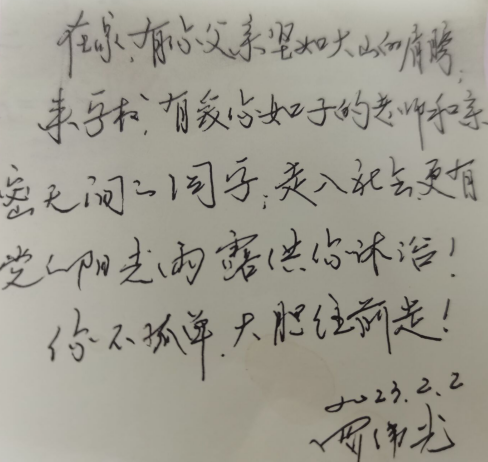 在家,有你父亲坚如大山的肩膀;
来学校,有爱你如子的老师和亲
密无间的同学;走入社会,更有
党的阳光雨露供你沐浴!
你不孤单,大胆往前走!
2023.2.2
罗伟光